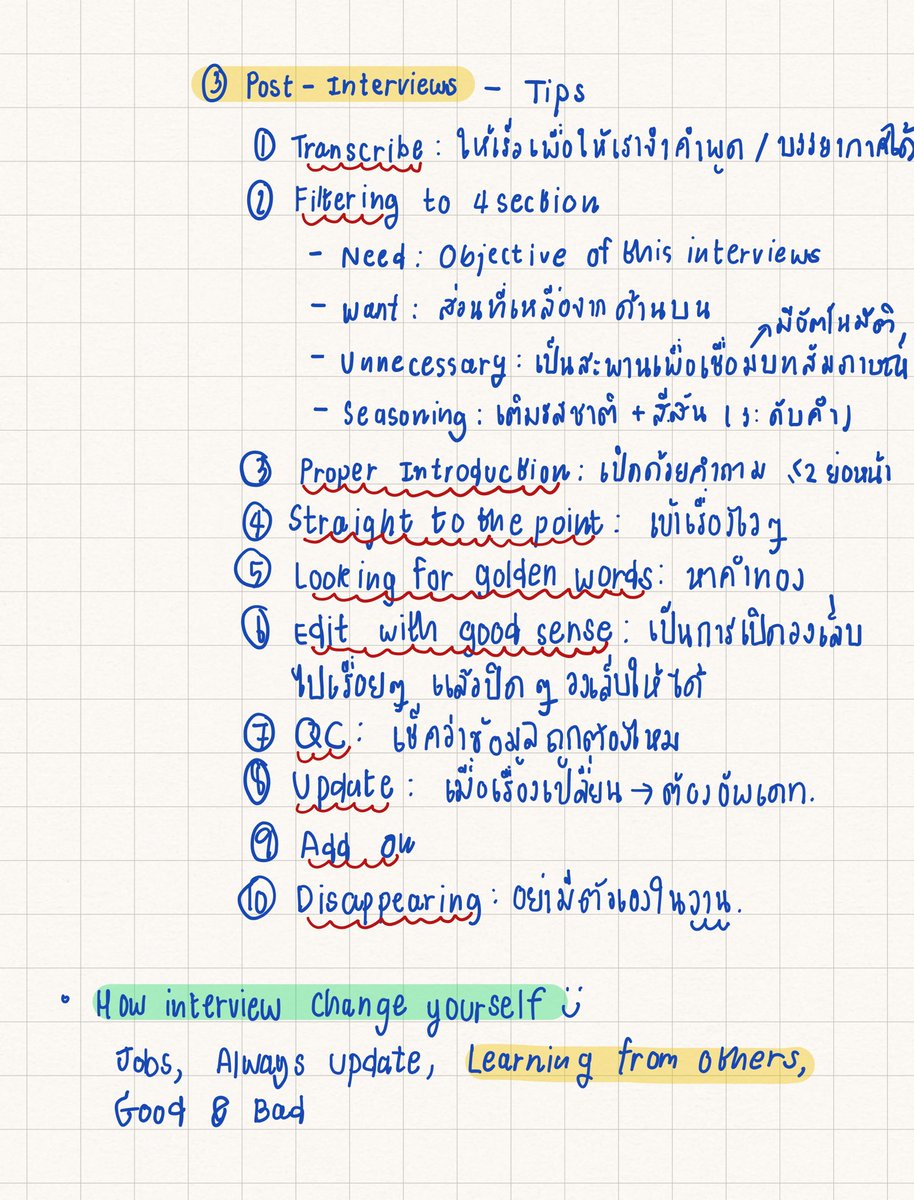 ③ Post - Interviews - Tips
① Transcribe : ให้เร็วเพื่อให้เราจำคำพูด / บรรยากาศได้
② Filtering to 4 section
- Need : Objective of this interviews
- Want : ส่วนที่เหลือจากด้านบน
↗ มีอัตโนมัติ,
- Unnecessary : เป็นสะพานเพื่อเชื่อมบทสัมภาษณ์
- Seasoning : เติมรสชาติ + สีสัน (ระดับคำ)
③ Proper Introduction : เปิดด้วยคำถาม ≤2 ย่อหน้า
④ Straight to the point : เข้าเรื่องไวๆ
⑤ Looking for golden words : หาคำทอง
⑥ Edit with good sense : เป็นการเปิดวงเล็บ
ไปเรื่อยๆ แล้วปิดๆ วงเล็บให้ได้
⑦ QC : เช็คว่าข้อมูลถูกต้องไหม
⑧ Update : เมื่อเรื่องเปลี่ยน → ต้องอัพเดท.
⑨ Add on
⑩ Disappearing : อย่ามีตัวเองในงาน.
• How interview change yourself
Jobs, Always update, Learning from others,
Good & Bad